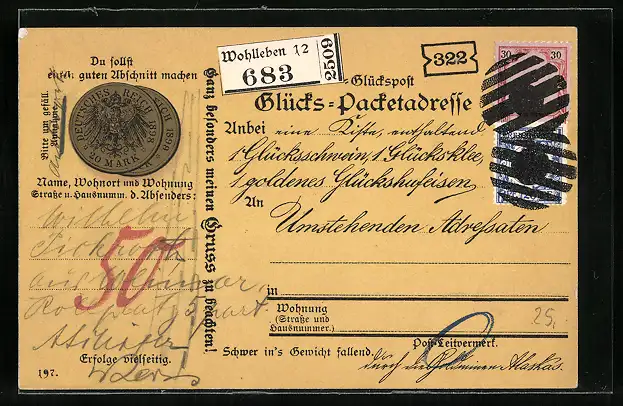 Du sollst
einen guten Abschnitt machen
Bitte um gefäll.
DEUTSCHES REICH 1898 1898
20 MARK
Name, Wohnort und Wohnung
Straße u. Hausnumm. d. Absenders:
Wilhelm
50
Erfolge vielseitig.
197.
Ganz besonders meinen Gruss zu beachten!
Wohlleben 12
683
2509
322
30 30
Glückspost
Glücks-Packetadresse
Anbei eine Kiste, enthaltend
1 Glücksschwein, 1 Glücksklee,
1 goldenes Glückshufeisen
An
Umstehenden Adressaten
in
Wohnung
(Straße und
Hausnummer.)
25,-
Post-Leitvermerk.
Schwer in's Gewicht fallend.
durch die Goldminen Alaskas.